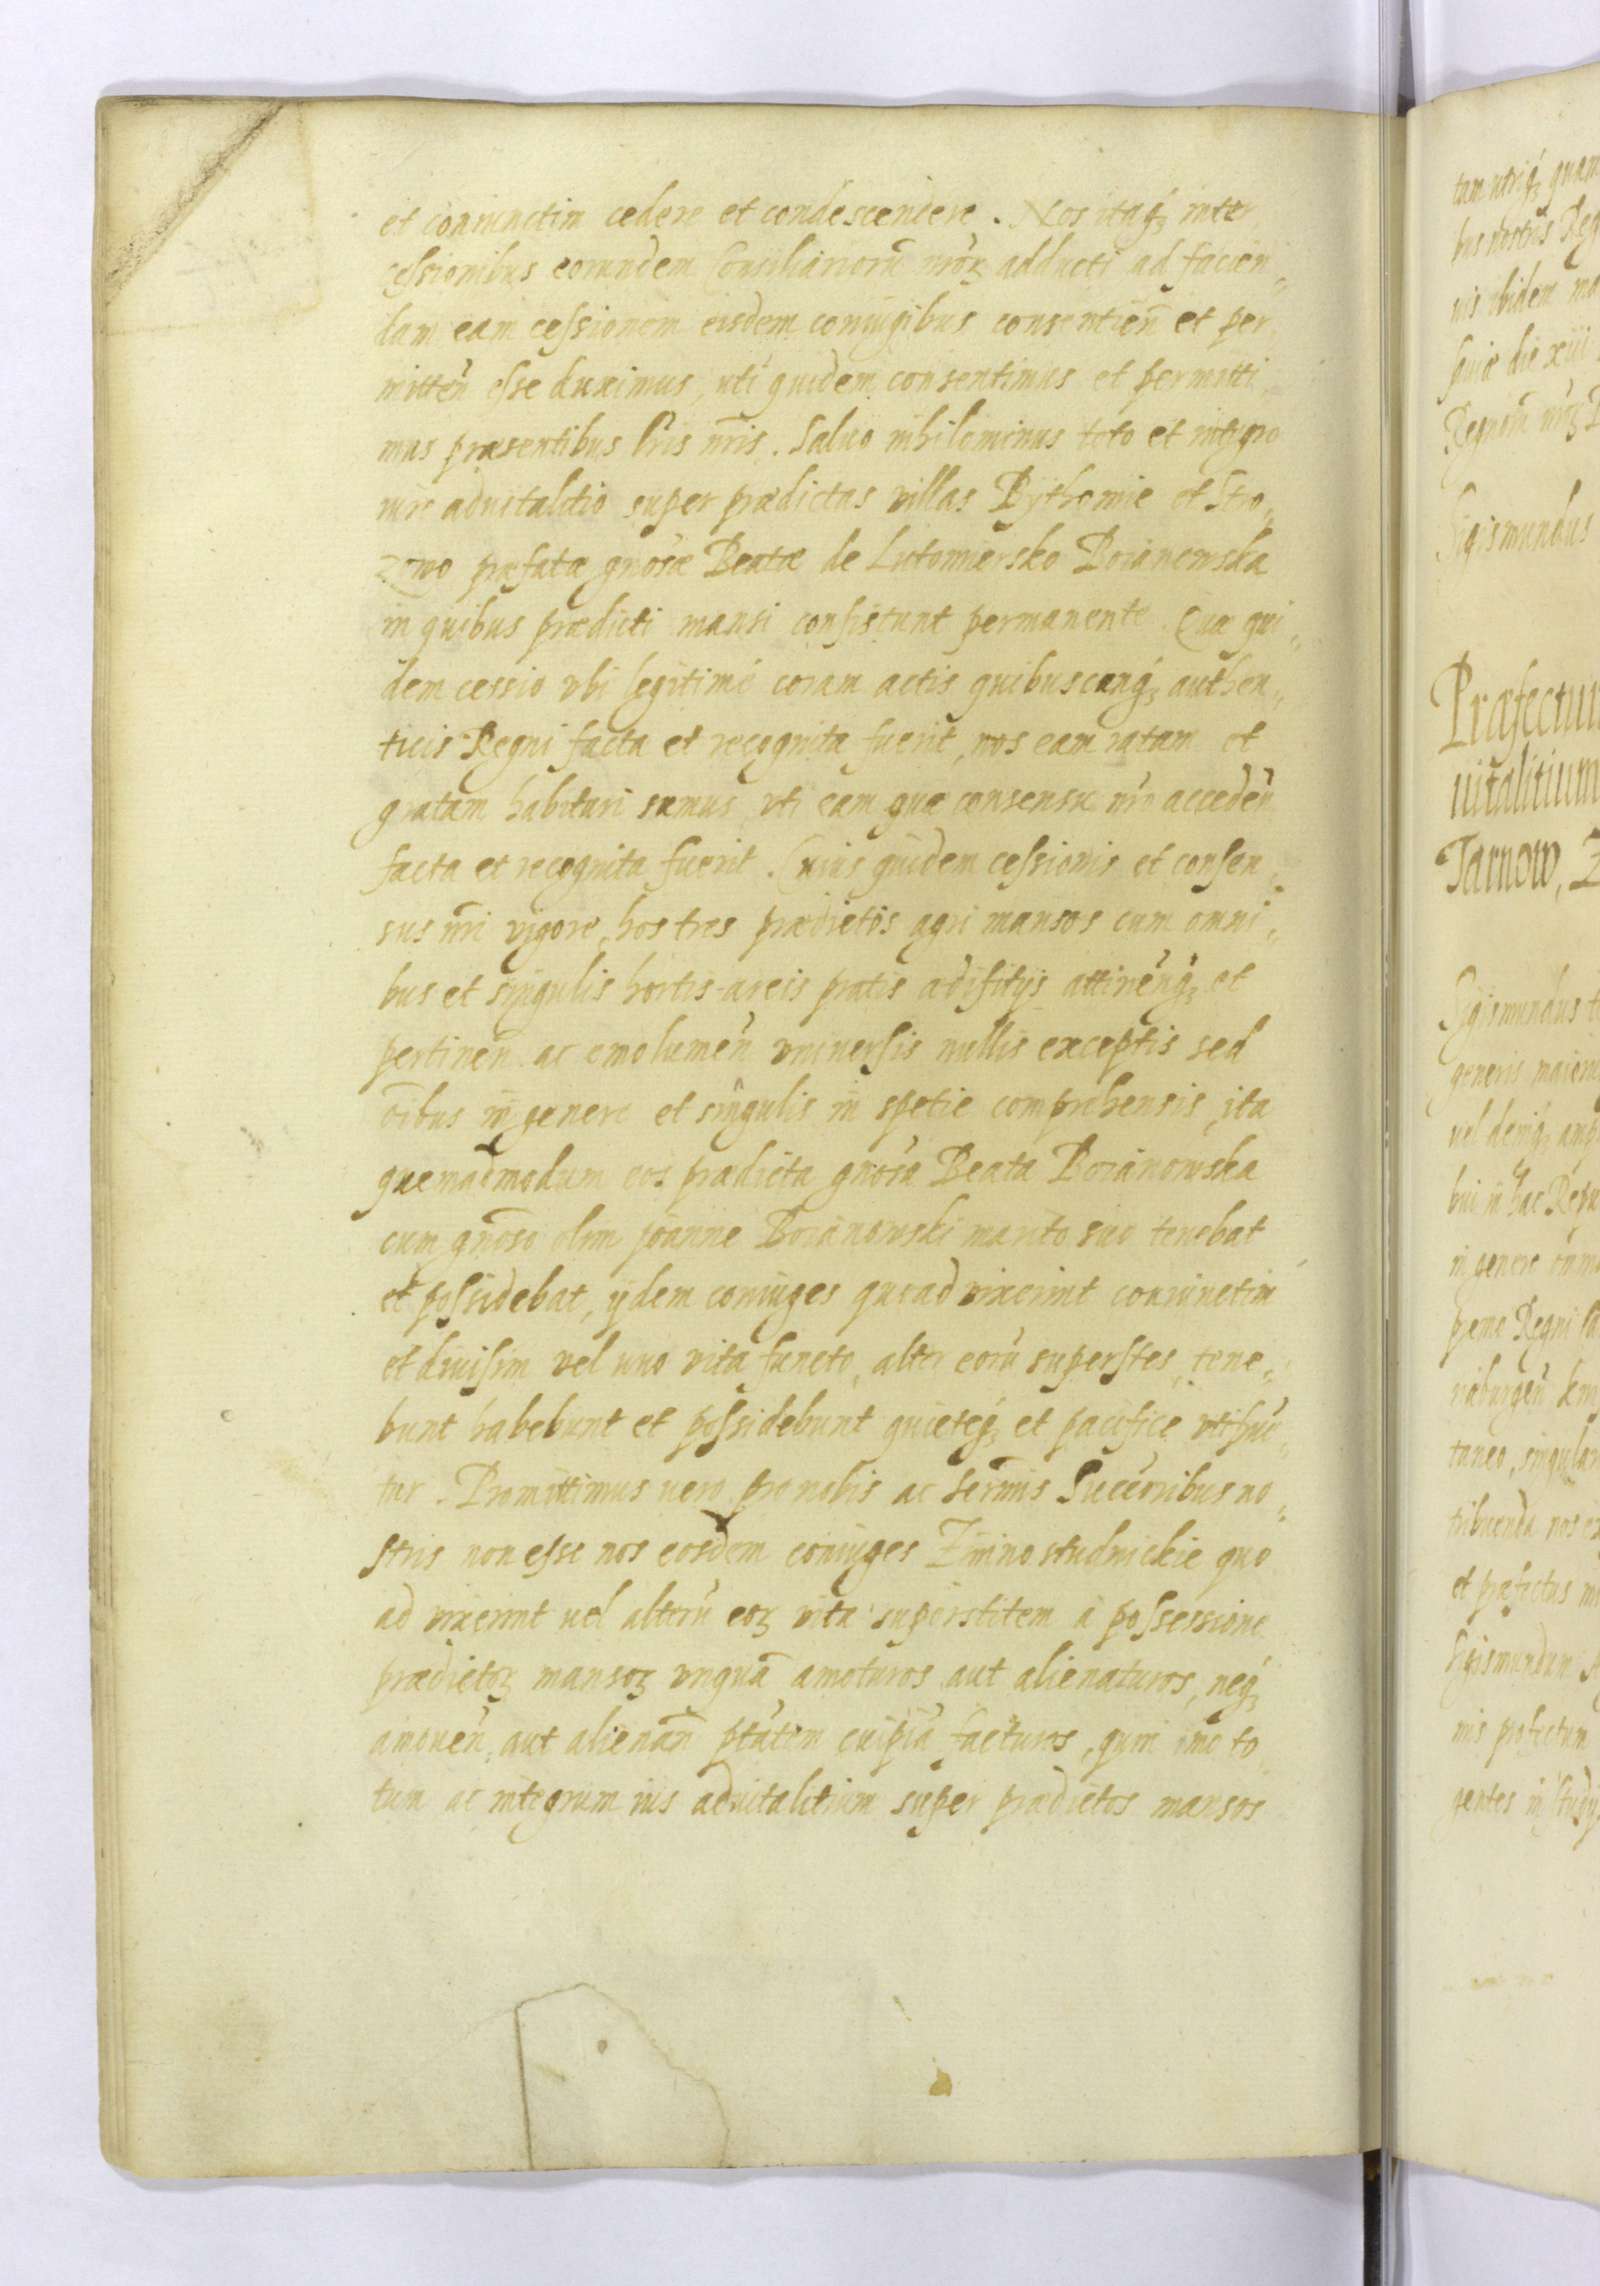 et coniunctim cedere et condescendere. Nos itaqꝫ inter
cessionibus eorundem Consiliariorũ nr̃oꝝ adducti ad facien„
dam eam cessionem eisdem coniugibus consentień et per
mitteń esse duximus, uti quidem consentimus et permitti
mus præsentibus l̃ris nr̃is. Saluo nihilominus toto et integro
iure aduitalitio super prædictas villas Bythomie et Stro„
zewo præfatæ gñosæ Beatæ de Lutomiersko Boianowska
in quibus prædicti mansi consistunt permanente. Quæ qui„
dem cessio vbi legitimé coram actis quibuscunqꝫ authen„
ticis Regni facta et recognita fuerit, nos eam ratam et
gratam habituri sumus, vti eam quæ consensu nr̃o accedeń
facta et recognita fuerit. Cuius quidem cessionis et consen„
sus nr̃i vigore, hos tres prædictos agri mansos cum omni„
bus et singulis hortis areis pratis ædifitijs attineñqꝫ et
pertineń ac emolumeń vniuersis nullis exceptis sed
oĩbus in genere et singulis in spetie comprehensis, ita
quemadmodum eos prædicta gñosa Beata Boianowska
cum gñoso olim joanne Boianowski marito suo tenebat
et possidebat, ÿdem coniuges quoad vixerint coniunctim
et diuisim vel uno vita functo, alter eorũ superstes, tene„
bunt habebunt et possidebunt quieteqꝫ et pacifice vtifrue„
tur. Promittimus uero pro nobis ac Sermis Succ̃oribus no„
stris non esse nos eosdem coniuges Zimnostudnickie quo
ad vixerint uel alterũ eoꝝ vita superstitem à possessione
prædictoꝝ mansoꝝ vnquã amoturos aut alienaturos, neqꝫ
amoueń aut alienań ptãtem cuipiã facturos, quin imo to
tum ac integrum ius aduitalitium super prædictos mansos
Sigismundus
Præfectur
uitalitium
Tarnow, Z
Sigismundus